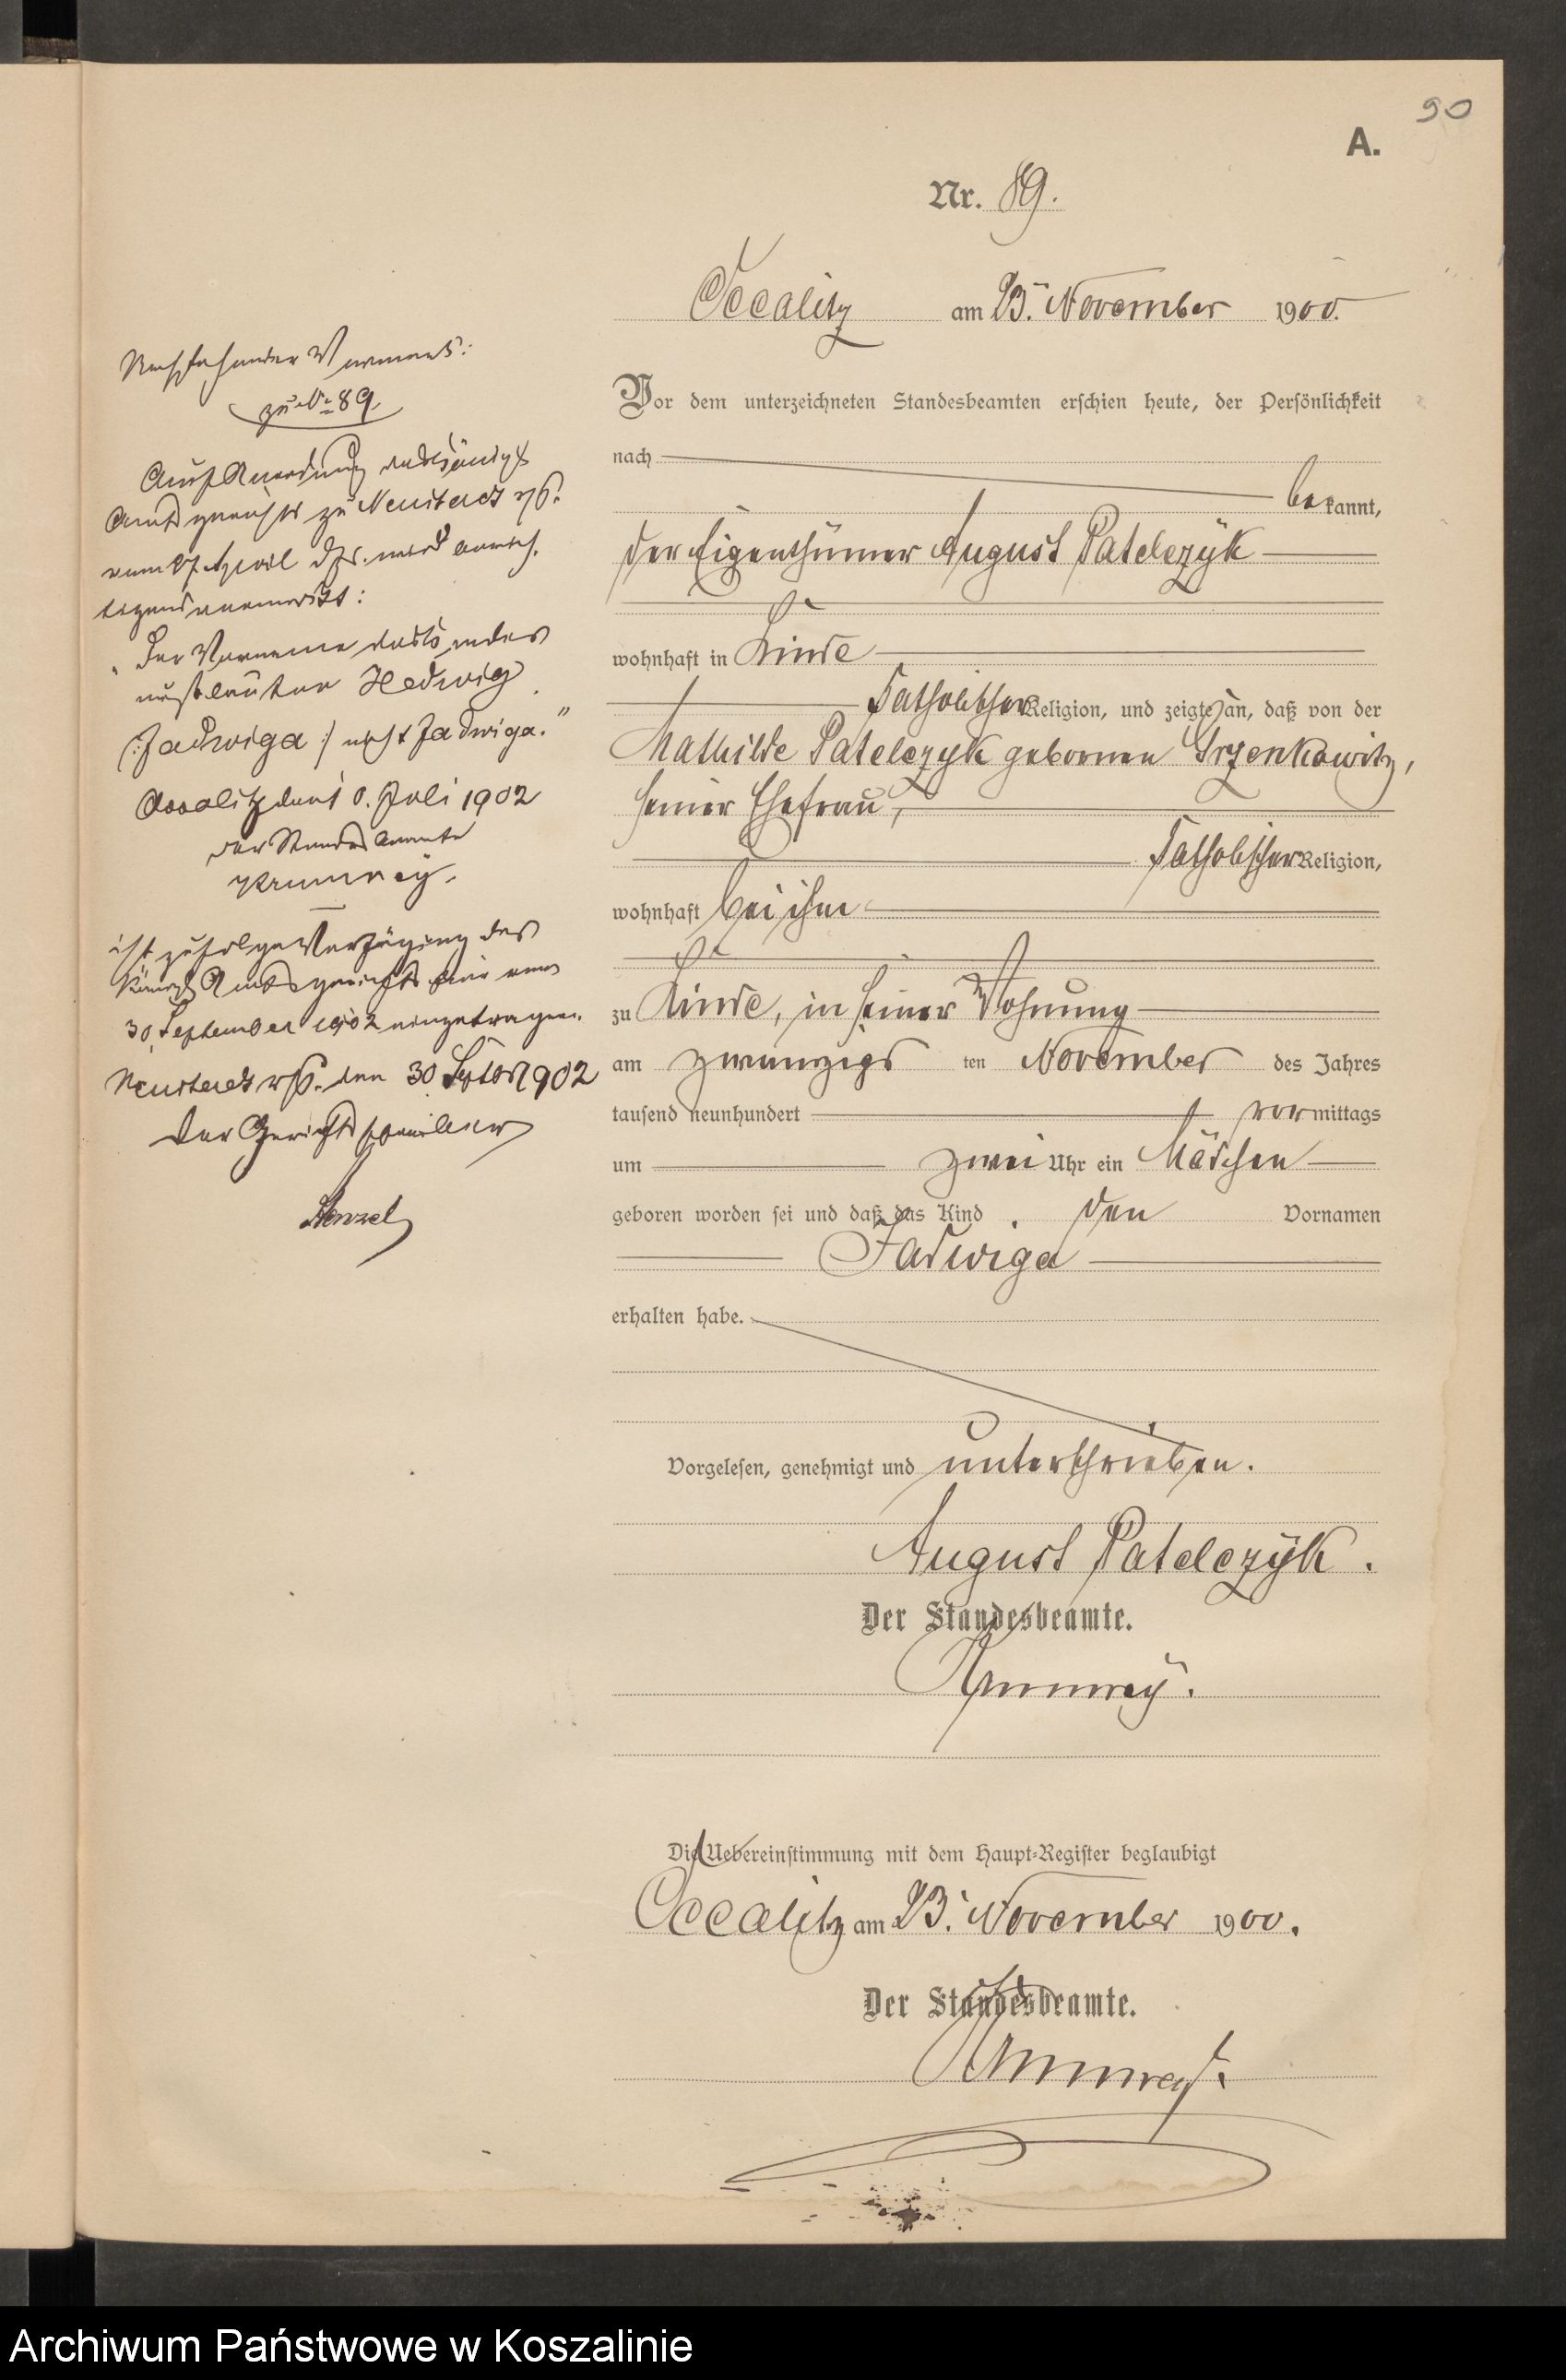 90
A.
Nr. 89.
Occalitz am 23. November 1900.
Vor dem unterzeichneten Standesbeamten erschien heute, der Persönlichkeit
nach
bekannt,
der Eigenthümer August Patelczÿk
wohnhaft in Linde
katholischer Religion, und zeigte an, daß von der
Mathilde Patelczyk geborenen Grzenkowitz,
seiner Ehefrau,
katholischer Religion,
wohnhaft bei ihm
zu Linde, in seiner Wohnung
am zwanzigsten November des Jahres
tausend neunhundert vormittags
um zwei Uhr ein Mädchen
geboren worden sei und daß das Kind den Vornamen
Jadwiga
erhalten habe.
Vorgelesen, genehmigt und unterschrieben.
August Patelczÿk.
Der Standesbeamte.
Krumreÿ.
Die Uebereinstimmung mit dem Haupt-Register beglaubigt
Occalitz am 23. November 1900.
Der Standesbeamte.
Krumreÿ.
Nachstehender Vermerk:
zu No 89
Auf Anordnung des Königl.
Amtsgerichts zu Neustadt
vom April d. Js. wird berich-
tigend vermerkt:
"Der Vorname des Kindes
muß lauten Hedwig
/: Jadwiga :/ nicht Jadwiga."
Occalitz den Juli 1902
der Standesbeamte
Krumreÿ.
ist zufolge Verfügung des
Königl. Amtsgerichts hier vom
30. September 1902 eingetragen.
Neustadt den 30 Septbr 1902
Der Gerichtsschreiber
Archiwum Państwowe w Koszalinie